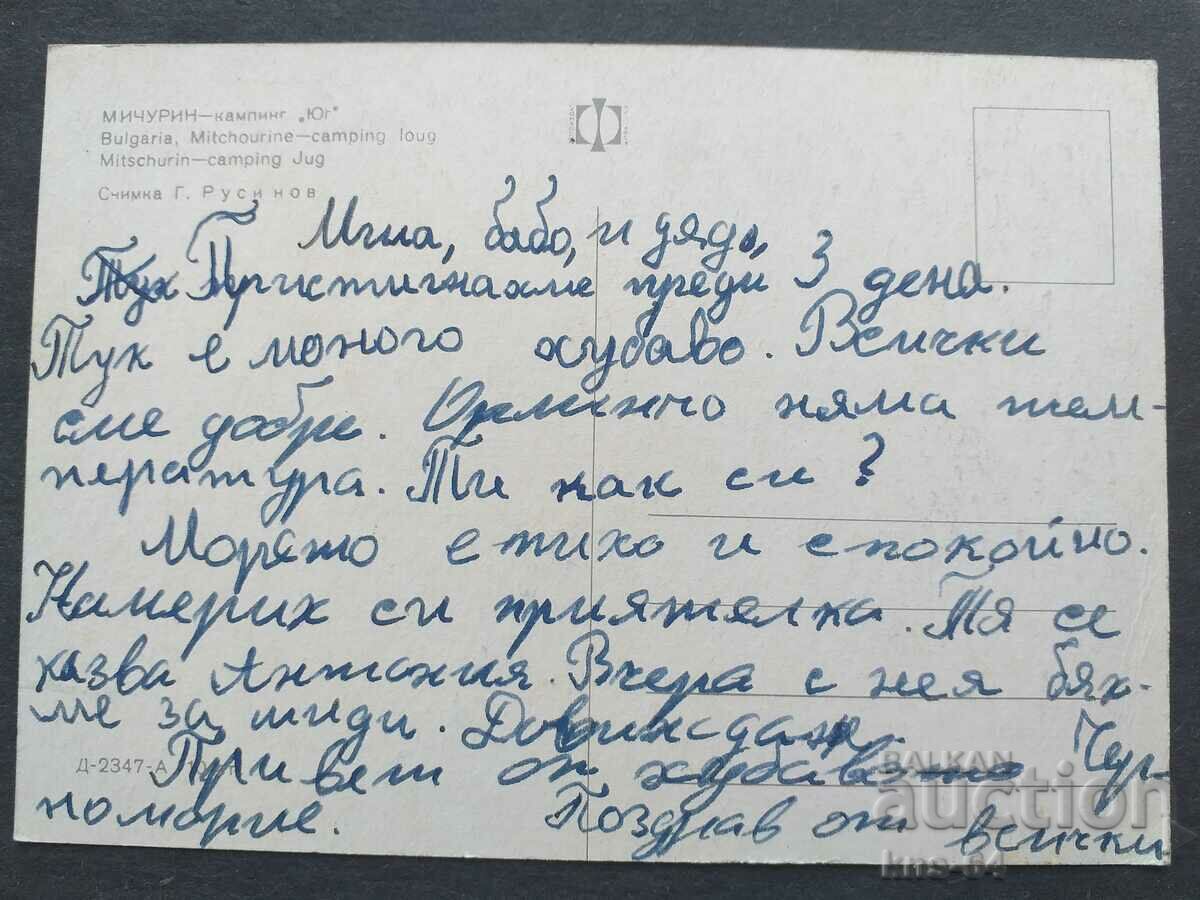 МИЧУРИН—кампинг „Юг"
Bulgaria, Mitchourine—camping Ioug
Mitschurin—camping Jug
Снимка Г. Русинов
Мила, бабо, и дядо,
Тук Пристигнахме преди 3 дена.
Тук е моного хубаво. Всички
сме добре. няма тем-
пература. Ти как си?
Морято е тихо и спокойно.
Намерих си приятелка. Тя се
казва Антония. Вчера с нея бях-
ме за миди. Довиждане
Д-2347-А
Привет от хубавото Чер-
номорие. Поздрав от всички
BALKAN
auction
kns-64